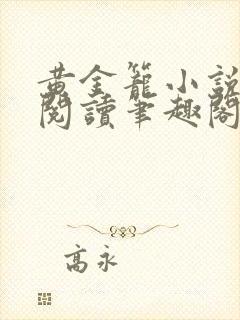 黄金籠小說
閱讀筆趣閣
高永